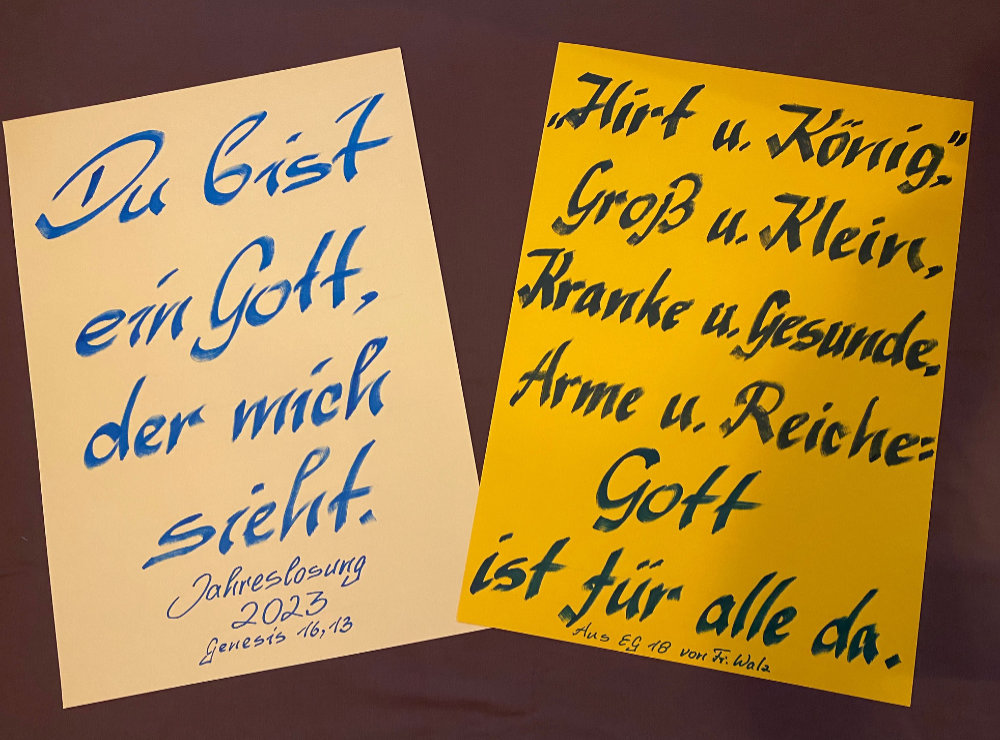 Du bist
ein Gott,
der mich
sieht.
Jahreslosung
2023
Genesis 16,13
„Hirt u. König“,
Groß u. Klein,
Kranke u. Gesunde.
Arme u. Reiche:
Gott
ist für alle da.
Aus EG 18 von Fr. Walz